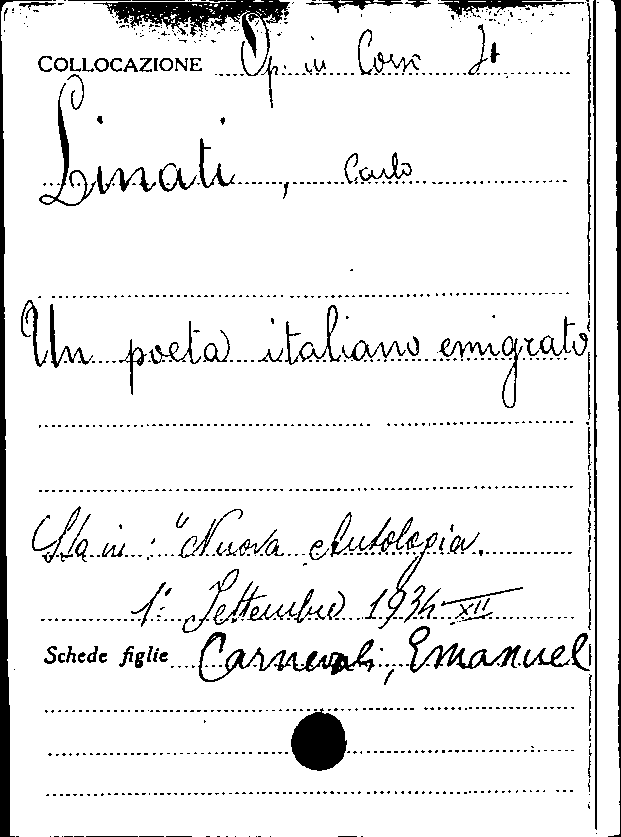 COLLOCAZIONE Op. in Corso It
Linati, Carlo
Un poeta italiano emigrato
Sta in: "Nuova Antologia.
1º Settembre 1934 XII
Schede figlie Carnevali, Emanuel